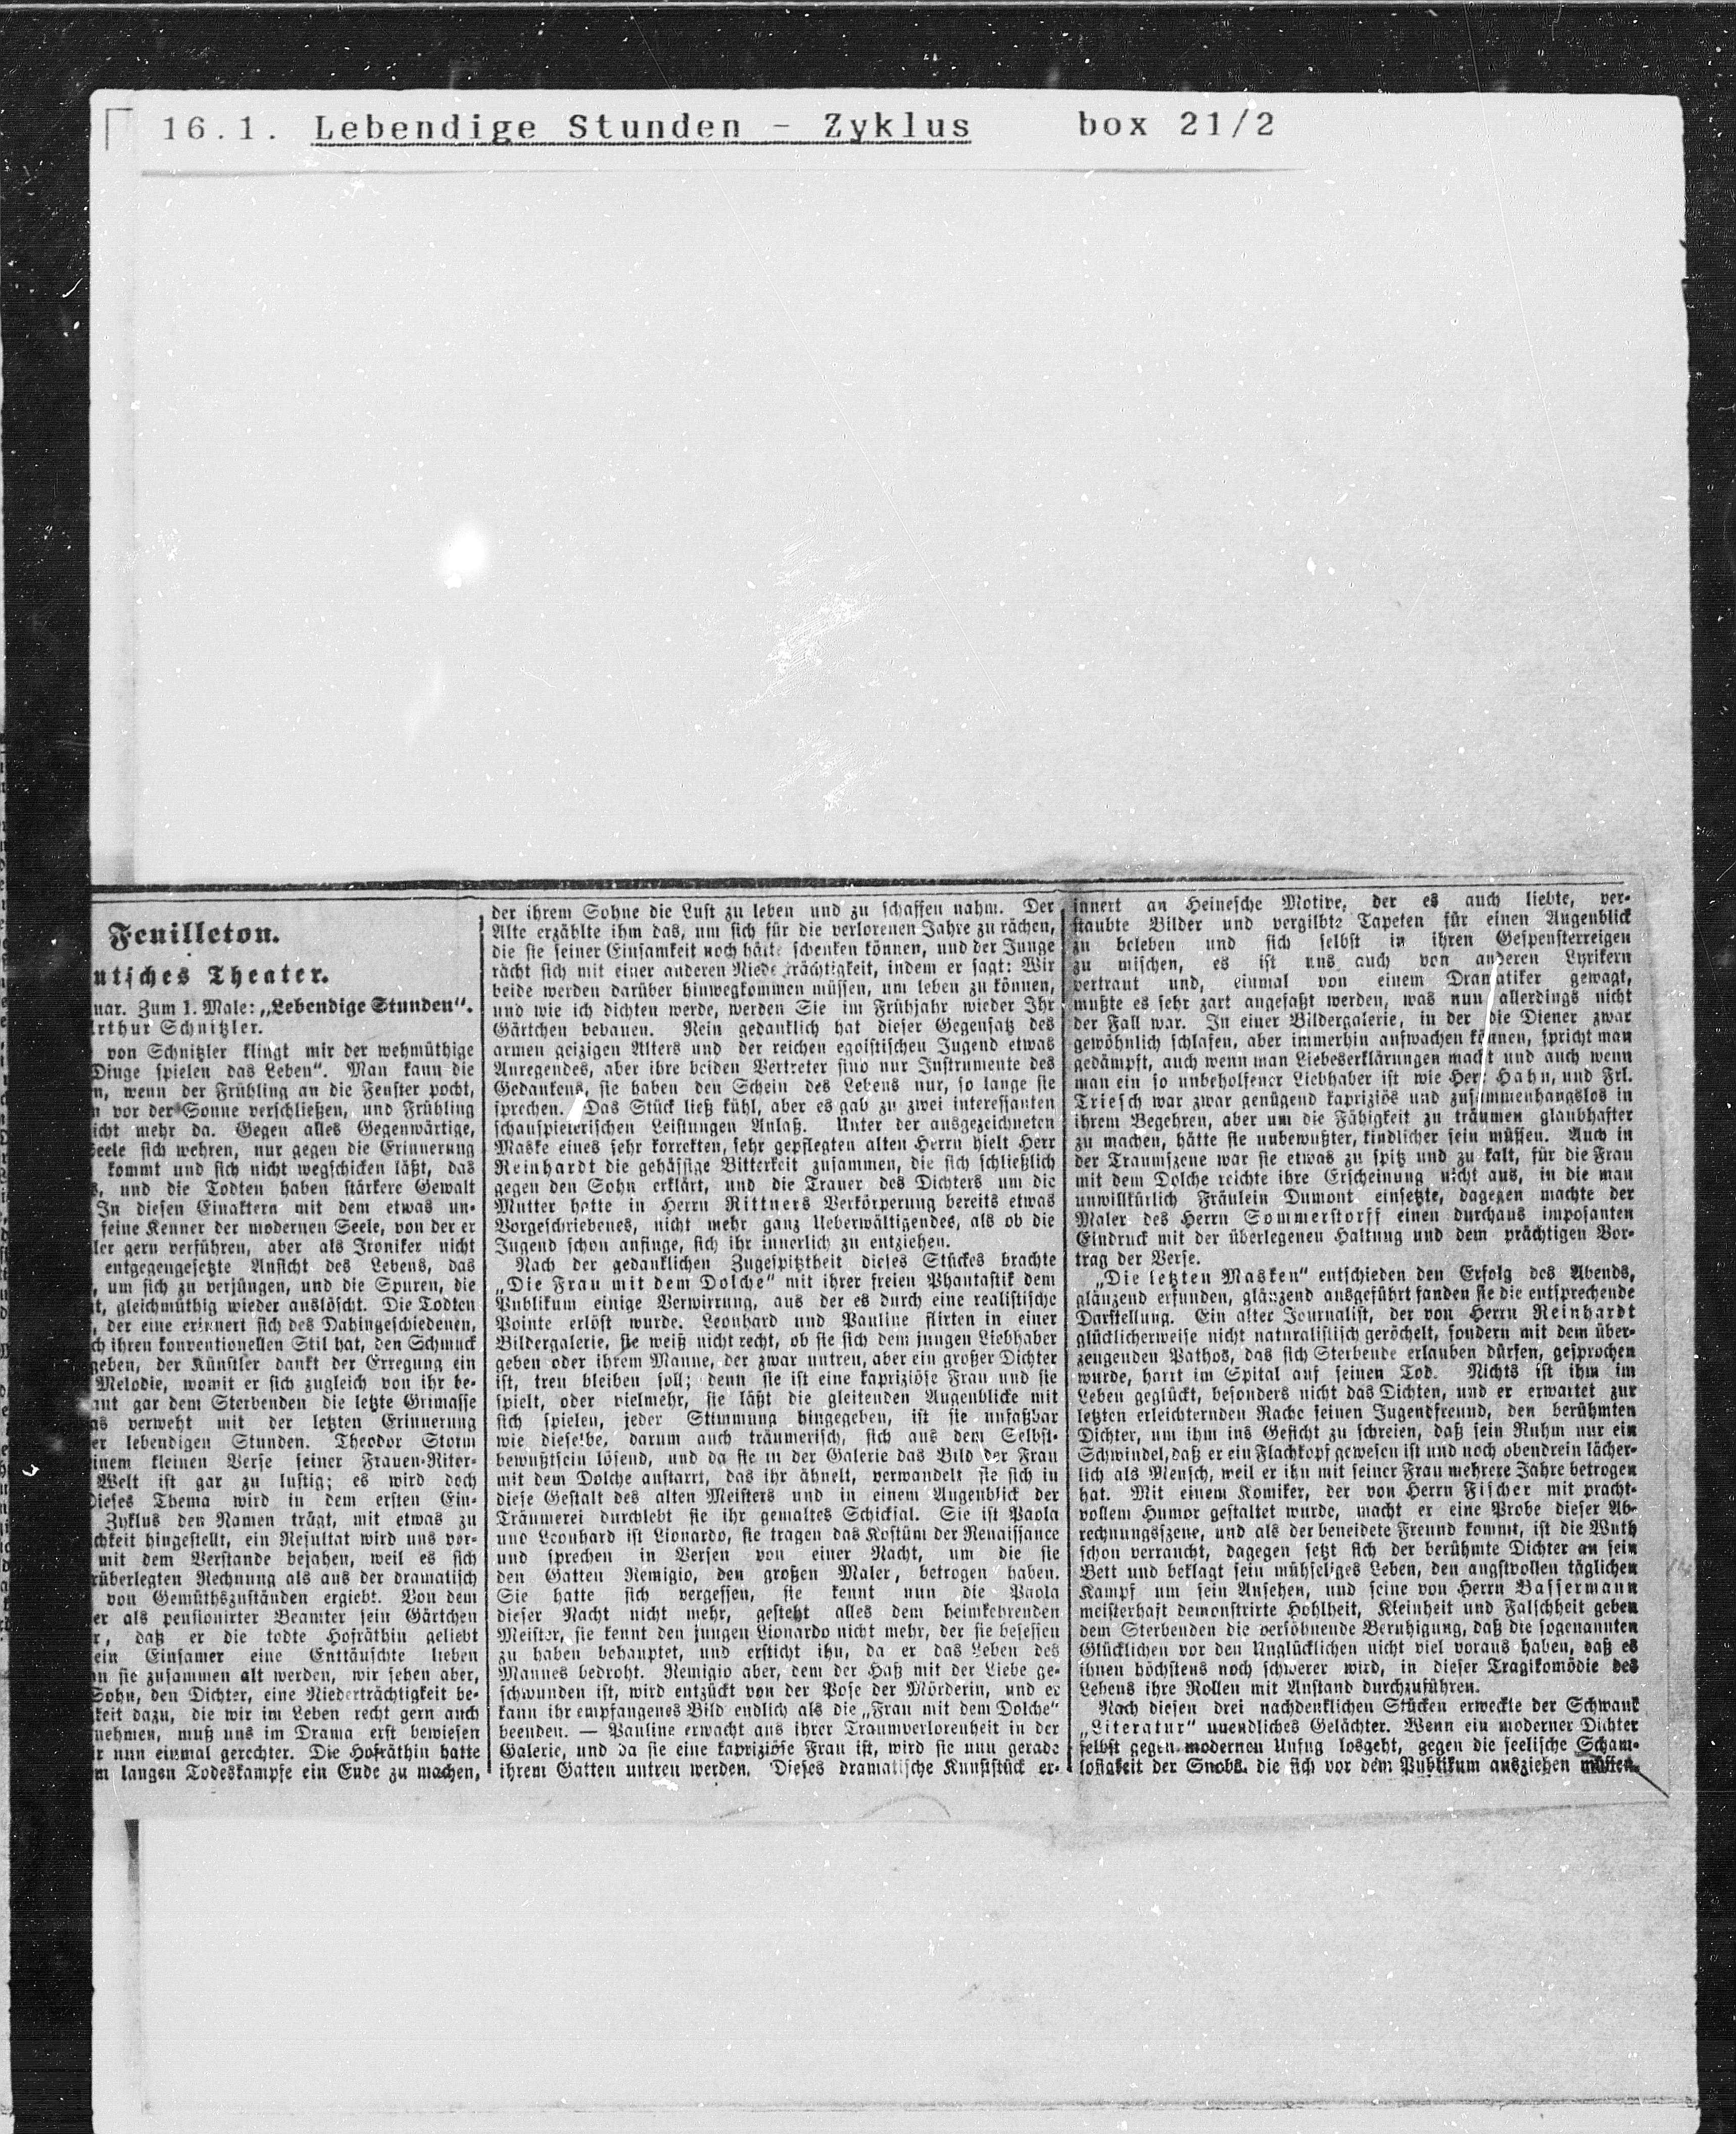 16.1. Lebendige Stunden - Zyklus box 21/2
Feuilleton.
utsches Theater.
nuar. Zum 1. Male: „Lebendige Stunden".
Arthur Schnitzler.
von Schnitzler klingt mir der wehmüthige
Dinge spielen das Leben". Man kann die
n, wenn der Frühling an die Fenster pocht,
n vor der Sonne verschließen, und Frühling
icht mehr da. Gegen alles Gegenwärtige,
Seele sich wehren, nur gegen die Erinnerung
kommt und sich nicht wegschicken läßt, das
s, und die Todten haben stärkere Gewalt
In diesen Einaktern mit dem etwas un-
feine Kenner der modernen Seele, von der er
ler gern verführen, aber als Ironiker nicht
entgegengesetzte Ansicht des Lebens, das
, um sich zu verjüngen, und die Spuren, die
t, gleichmüthig wieder auslöscht. Die Todten
, der eine erinnert sich des Dahingeschiedenen,
ch ihren konventionellen Stil hat, den Schmuck
geben, der Künstler dankt der Erregung ein
Melodie, womit er sich zugleich von ihr be-
aut gar dem Sterbenden die letzte Grimasse
as verweht mit der letzten Erinnerung
er lebendigen Stunden. Theodor Storm
einem kleinen Verse seiner Frauen-Ritor-
Welt ist gar zu lustig; es wird doch
Dieses Thema wird in dem ersten Ein-
Zyklus den Namen trägt, mit etwas zu
chkeit hingestellt, ein Resultat wird uns vor-
mit dem Verstande bejahen, weil es sich
rüberlegten Rechnung als aus der dramatisch
von Gemüthszuständen ergiebt. Von dem
er als pensionirter Beamter sein Gärtchen
r, daß er die todte Hofräthin geliebt
ein Einsamer eine Enttäuschte lieben
n sie zusammen alt werden, wir sehen aber,
Sohn, den Dichter, eine Niederträchtigkeit be-
keit dazu, die wir im Leben recht gern auch
nehmen, muß uns im Drama erst bewiesen
r nun einmal gerechter. Die Hofräthin hatte
m langen Todeskampfe ein Ende zu machen,
der ihrem Sohne die Lust zu leben und zu schaffen nahm. Der
Alte erzählte ihm das, um sich für die verlorenen Jahre zu rächen,
die sie seiner Einsamkeit noch hätte schenken können, und der Junge
rächt sich mit einer anderen Niederträchtigkeit, indem er sagt: Wir
beide werden darüber hinwegkommen müssen, um leben zu können,
und wie ich dichten werde, werden Sie im Frühjahr wieder Ihr
Gärtchen bebauen. Rein gedanklich hat dieser Gegensatz des
armen geizigen Alters und der reichen egoistischen Jugend etwas
Anregendes, aber ihre beiden Vertreter sind nur Instrumente des
Gedankens, sie haben den Schein des Lebens nur, so lange sie
sprechen. Das Stück ließ kühl, aber es gab zu zwei interessanten
schauspielerischen Leistungen Anlaß. Unter der ausgezeichneten
Maske eines sehr korrekten, sehr gepflegten alten Herrn hielt Herr
Reinhardt die gehässige Bitterkeit zusammen, die sich schließlich
gegen den Sohn erklärt, und die Trauer des Dichters um die
Mutter hatte in Herrn Rittners Verkörperung bereits etwas
Vorgeschriebenes, nicht mehr ganz Ueberwältigendes, als ob die
Jugend schon anfinge, sich ihr innerlich zu entziehen.
Nach der gedanklichen Zugespitztheit dieses Stückes brachte
„Die Frau mit dem Dolche" mit ihrer freien Phantastik dem
Publikum einige Verwirrung, aus der es durch eine realistische
Pointe erlöst wurde. Leonhard und Pauline flirten in einer
Bildergalerie, sie weiß nicht recht, ob sie sich dem jungen Liebhaber
geben oder ihrem Manne, der zwar untreu, aber ein großer Dichter
ist, treu bleiben soll; denn sie ist eine kapriziöse Frau und sie
spielt, oder vielmehr, sie läßt die gleitenden Augenblicke mit
sich spielen, jeder Stimmung hingegeben, ist sie unfaßbar
wie dieselbe, darum auch träumerisch, sich aus dem Selbst-
bewußtsein lösend, und da sie in der Galerie das Bild der Frau
mit dem Dolche anstarrt, das ihr ähnelt, verwandelt sie sich in
diese Gestalt des alten Meisters und in einem Augenblick der
Träumerei durchlebt sie ihr gemaltes Schicksal. Sie ist Paola
und Leonhard ist Lionardo, sie tragen das Kostüm der Renaissance
und sprechen in Versen von einer Nacht, um die sie
den Gatten Remigio, den großen Maler, betrogen haben.
Sie hatte sich vergessen, sie kennt nun die Paola
dieser Nacht nicht mehr, gesteht alles dem heimkehrenden
Meister, sie kennt den jungen Lionardo nicht mehr, der sie besessen
zu haben behauptet, und ersticht ihn, da er das Leben des
Mannes bedroht. Remigio aber, dem der Haß mit der Liebe ge-
schwunden ist, wird entzückt von der Pose der Mörderin, und er
kann ihr empfangenes Bild endlich als die „Frau mit dem Dolche"
beenden. — Pauline erwacht aus ihrer Traumverlorenheit in der
Galerie, und da sie eine kapriziöse Frau ist, wird sie nun gerade
ihrem Gatten untreu werden. Dieses dramatische Kunststück er-
innert an Heinesche Motive, der es auch liebte, ver-
staubte Bilder und vergilbte Tapeten für einen Augenblick
zu beleben und sich selbst in ihren Gespensterreigen
zu mischen, es ist uns auch von anderen Lyrikern
vertraut und, einmal von einem Dramatiker gewagt,
mußte es sehr zart angefaßt werden, was nun allerdings nicht
der Fall war. In einer Bildergalerie, in der die Diener zwar
gewöhnlich schlafen, aber immerhin aufwachen können, spricht man
gedämpft, auch wenn man Liebeserklärungen macht und auch wenn
man ein so unbeholfener Liebhaber ist wie Herr Hahn, und Frl.
Triesch war zwar genügend kapriziös und zusammenhangslos in
ihrem Begehren, aber um die Fähigkeit zu träumen glaubhafter
zu machen, hätte sie unbewußter, kindlicher sein müssen. Auch in
der Traumszene war sie etwas zu spitz und zu kalt, für die Frau
mit dem Dolche reichte ihre Erscheinung nicht aus, in die man
unwillkürlich Fräulein Dumont einsetzte, dagegen machte der
Maler des Herrn Sommerstorff einen durchaus imposanten
Eindruck mit der überlegenen Haltung und dem prächtigen Vor-
trag der Verse.
„Die letzten Masken" entschieden den Erfolg des Abends,
glänzend erfunden, glänzend ausgeführt fanden sie die entsprechende
Darstellung. Ein alter Journalist, der von Herrn Reinhardt
glücklicherweise nicht naturalistisch geröchelt, sondern mit dem über-
zeugenden Pathos, das sich Sterbende erlauben dürfen, gesprochen
wurde, harrt im Spital auf seinen Tod. Nichts ist ihm im
Leben geglückt, besonders nicht das Dichten, und er erwartet zur
letzten erleichternden Rache seinen Jugendfreund, den berühmten
Dichter, um ihm ins Gesicht zu schreien, daß sein Ruhm nur ein
Schwindel, daß er ein Flachkopf gewesen ist und noch obendrein lächer-
lich als Mensch, weil er ihn mit seiner Frau mehrere Jahre betrogen
hat. Mit einem Komiker, der von Herrn Fischer mit pracht-
vollem Humor gestaltet wurde, macht er eine Probe dieser Ab-
rechnungsszene, und als der beneidete Freund kommt, ist die Wuth
schon verraucht, dagegen setzt sich der berühmte Dichter an sein
Bett und beklagt sein mühseliges Leben, den angstvollen täglichen
Kampf um sein Ansehen, und seine von Herrn Bassermann
meisterhaft demonstrirte Hohlheit, Kleinheit und Falschheit geben
dem Sterbenden die versöhnende Beruhigung, daß die sogenannten
Glücklichen vor den Unglücklichen nicht viel voraus haben, daß es
ihnen höchstens noch schwerer wird, in dieser Tragikomödie des
Lebens ihre Rollen mit Anstand durchzuführen.
Nach diesen drei nachdenklichen Stücken erweckte der Schwank
„Literatur" unendliches Gelächter. Wenn ein moderner Dichter
selbst gegen modernen Unfug losgeht, gegen die seelische Scham-
losigkeit der Snobs, die sich vor dem Publikum ausziehen müssen,